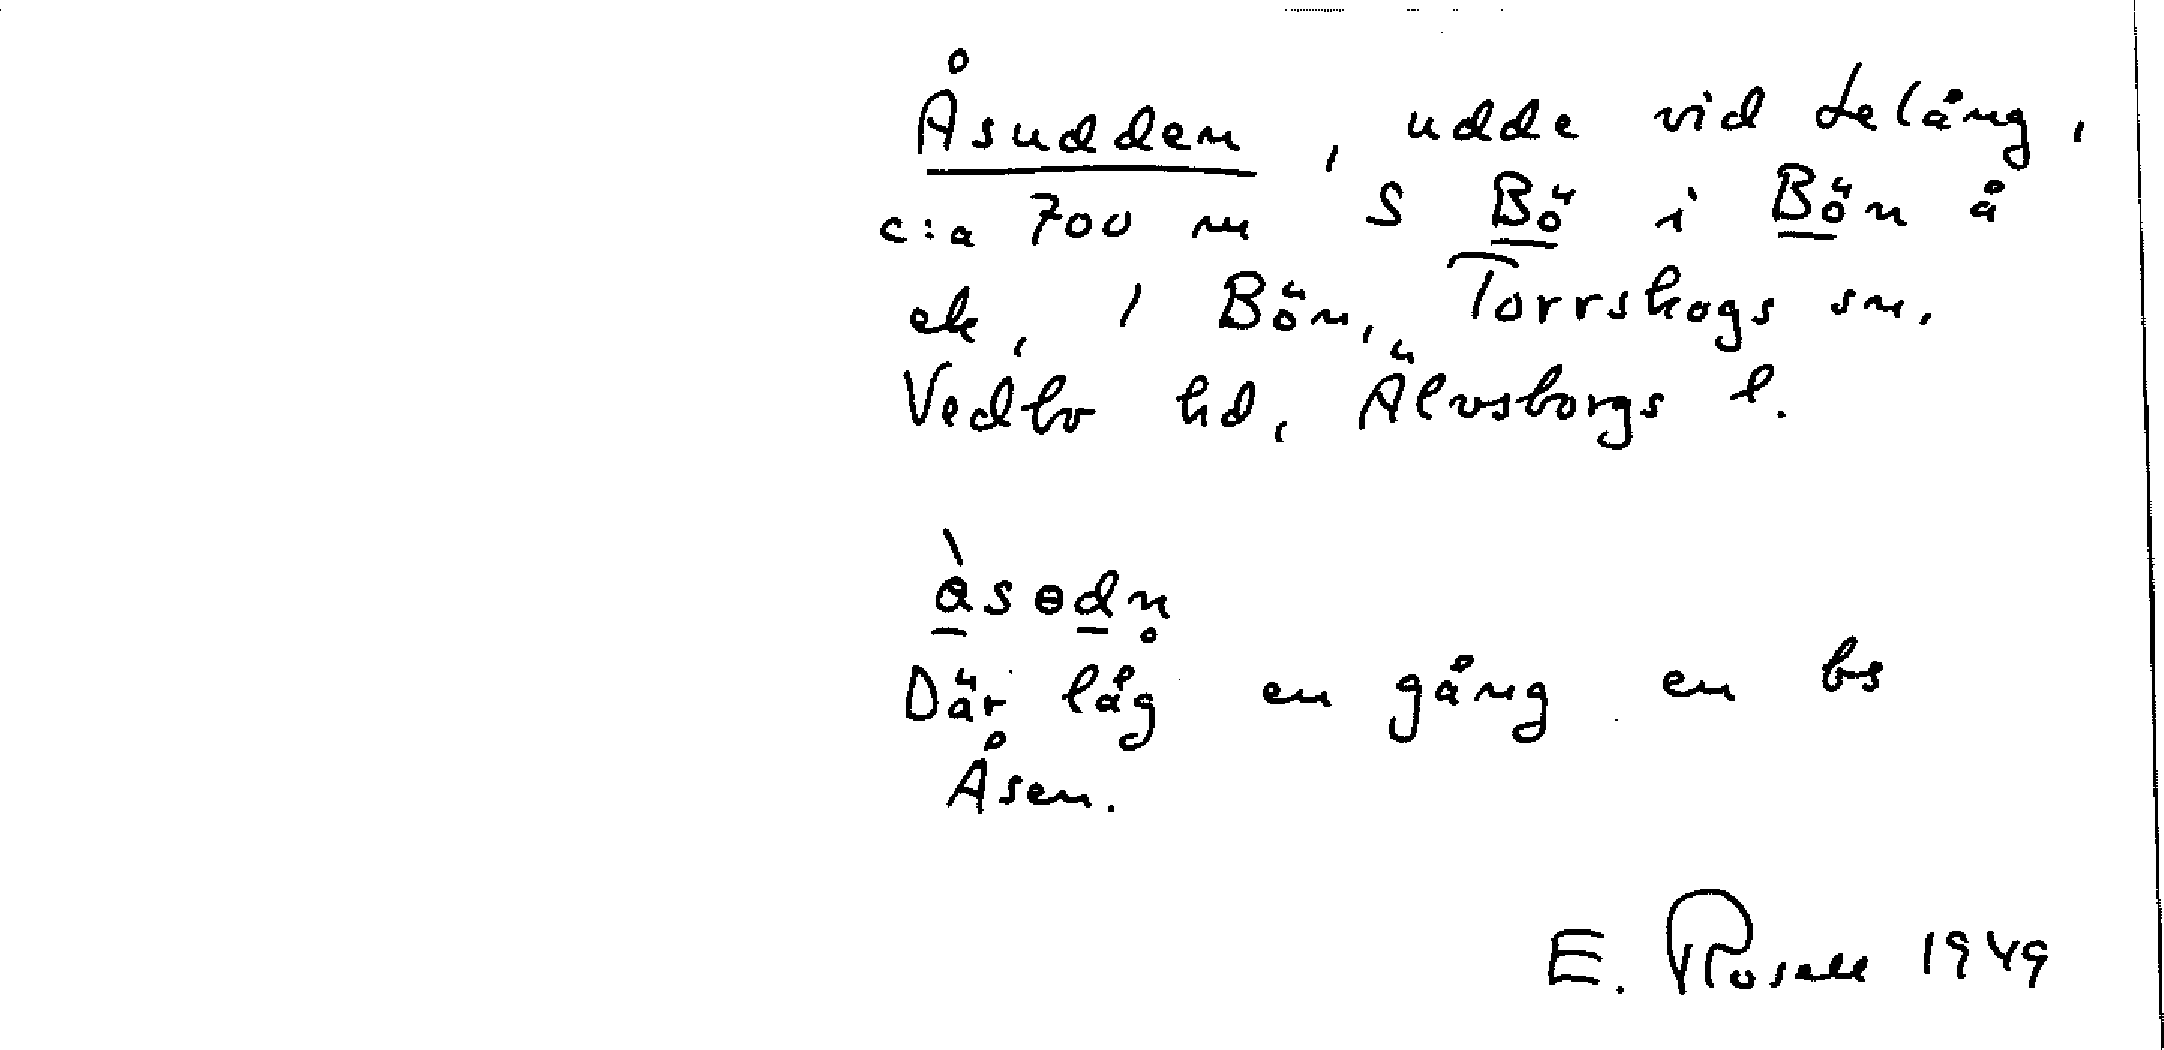 Åsudden, udde vid Lelång,
c:a 700 m S Bö i Bön å
ek, 1 Bön, Torrskogs sn.
Vedbo hd, Älvsborgs l.
Där låg en gång en bs
Åsen.
E. Rosell 1949